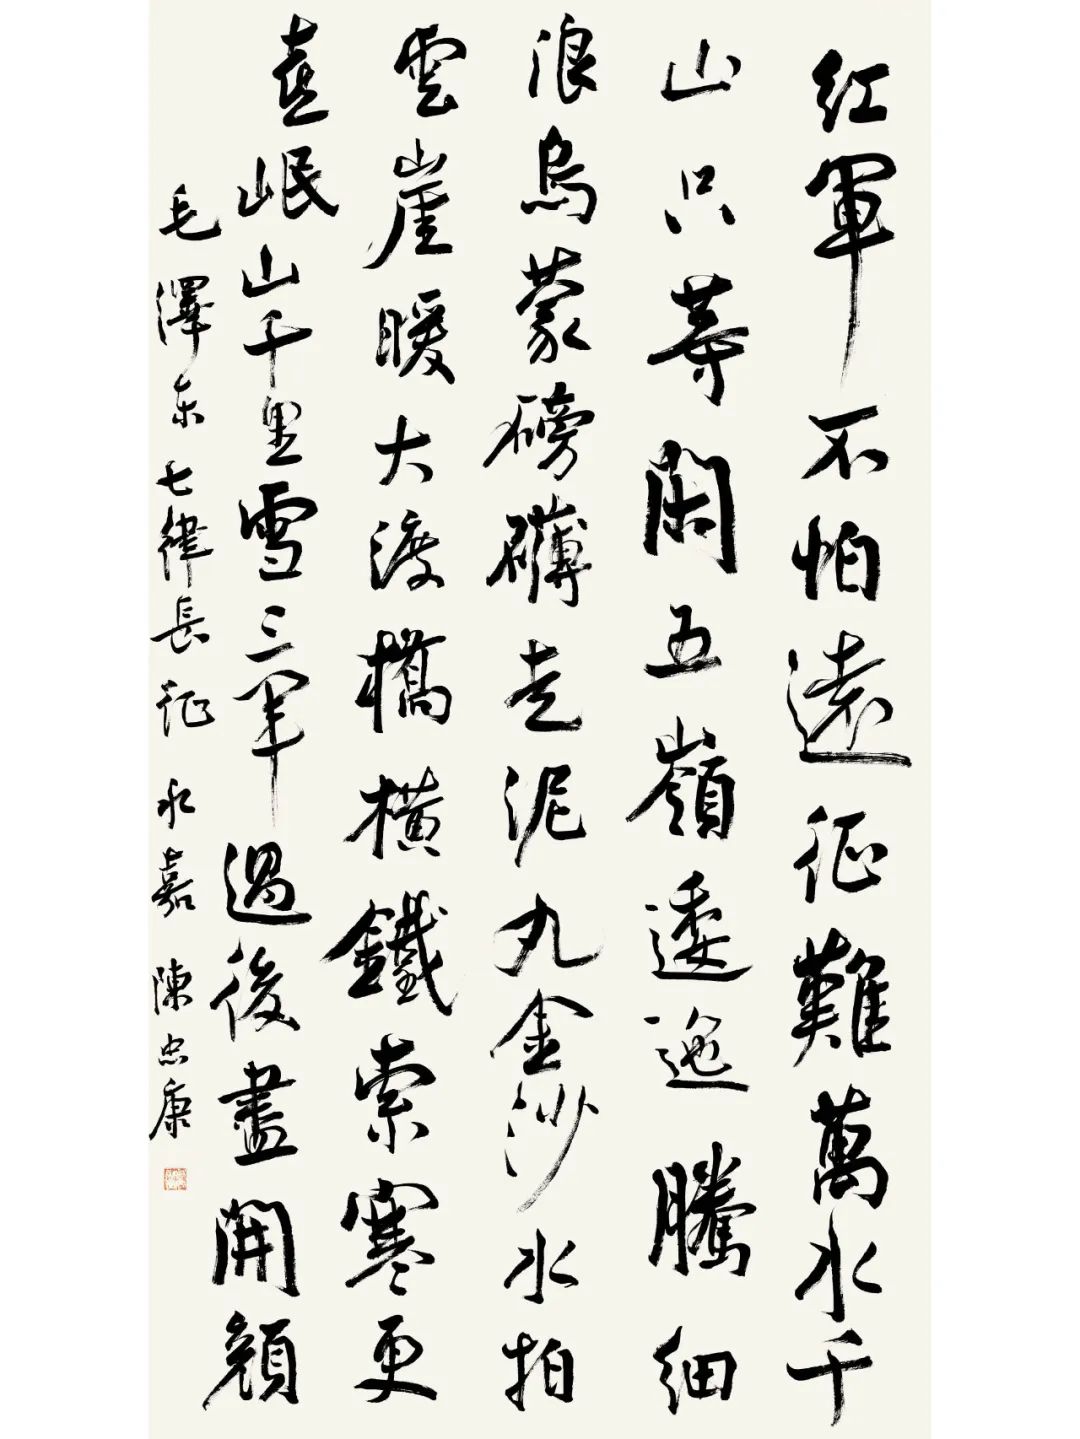 紅軍不怕遠征難萬水千
山只等閑五嶺逶迤騰細
浪烏蒙磅礴走泥丸金沙水拍
雲崖暖大渡橋橫鐵索寒更
喜岷山千里雪三軍過後盡開顏
毛澤东七律長征 永嘉 陳忠康